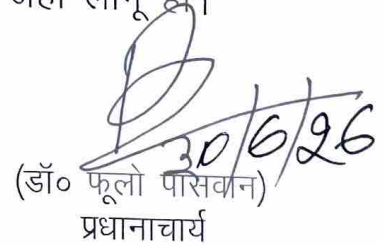 30/6/26
(डॉ० फूलो पासवान)
प्रधानाचार्य